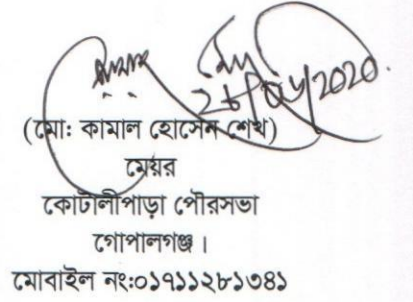 (মো: কামাল হোসেন শেখ)
মেয়র
কোটালীপাড়া পৌরসভা
গোপালগঞ্জ।
মোবাইল নং:০১৭১১২৮১৩৪১